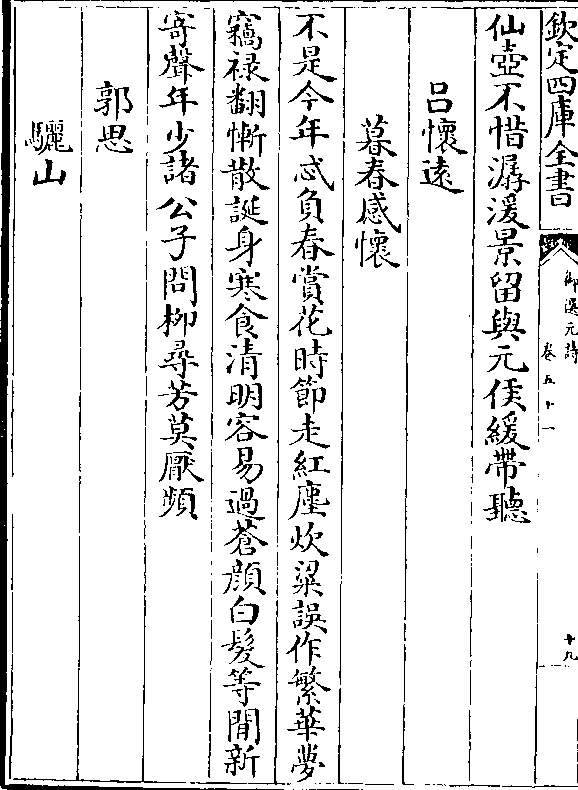 欽定四庫全書
御選元詩
卷五十一
十九
仙壺不惜潺湲景留與元侯緩帶聽
呂懷遠
暮春感懷
不是今年忒負春賞花時節走紅塵炊粱誤作繁華夢
竊禄翻慚散誕身寒食清明容易過蒼顔白髮等閒新
寄聲年少諸公子問柳尋芳莫厭頻
郭思
驪山